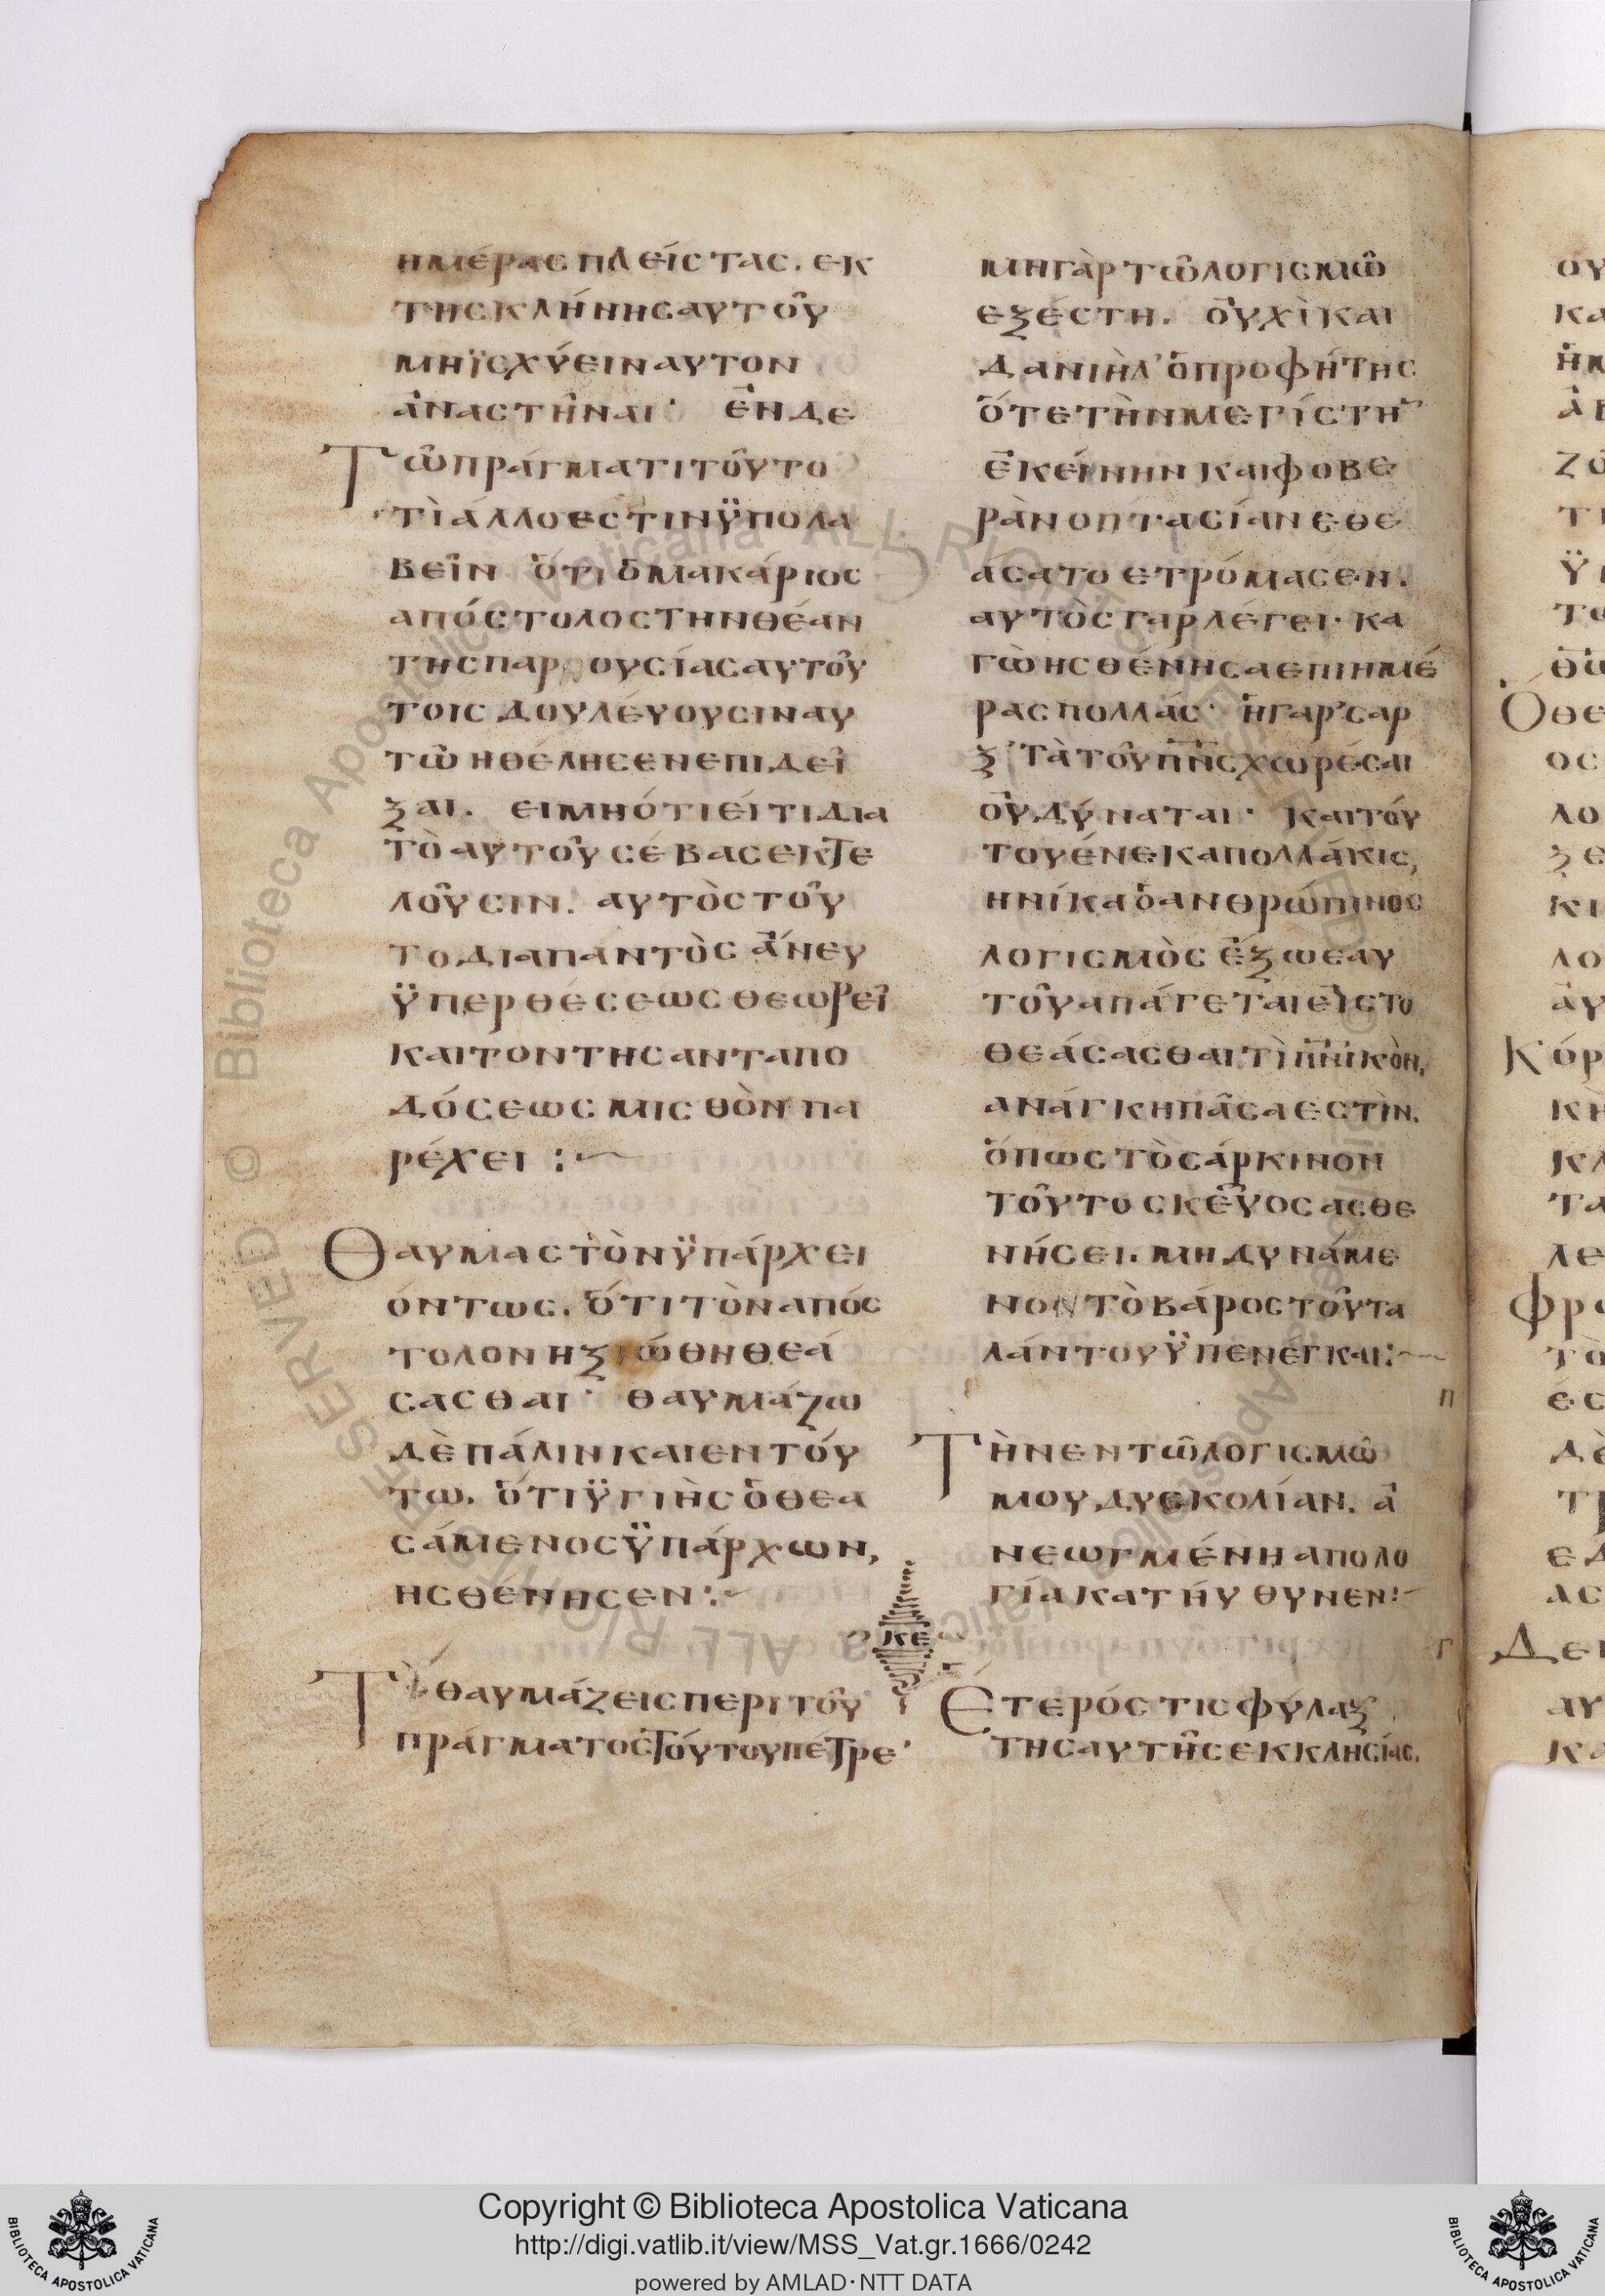 ημέρας πλείστας. εκ
της κλήνης αυτοῦ
μη ϊσχύειν αυτον
ἀναστῆναι· ἐν δε
Τῶ πράγματι τοῦτο
τὶ ἀλλο εστιν ϋπολα
βεῖν ὅτι ὁ μακάριος
απόστολος την θέαν
της παρουσίας αυτοῦ
τοις δουλέυουσιν αυ
τῶ ηθέλησεν επιδεῖ
ξαι. ει μη ότι εί τι δια
τὸ αυτοῦ σέβας εκτε
λοῦσιν. αυτὸς τοῦ
το διαπαντὸς ἄνευ
ϋπερθέσεως θεωρεῖ
και τον της ανταπο
δόσεως μισθὸν πα
ρέχει :~
Θαυμαστὸν ϋπάρχει
όντως. ὅτι τὸν απόσ
τολον ηξιώθη θεά
σασθαι· θαυμάζω
δὲ πάλιν και εν τού
τω. ὅτι ϋγιὴς ὁ θεα
σάμενος ϋπάρχων,
ησθένησεν :~
Τί θαυμάζεις περι τοῦ
πράγματος τούτου πέτρε·
μη γὰρ τῶ λογισμῶ
εξέστη. οὐχὶ και
Δανιὴλ ὁ προφήτης
ὅτε τὴν μεγίστη̅
ἐκείνην και φοβε
ρὰν οπτασίαν εθε
άσατο ετρόμασεν.
αυτὸς γαρ λέγει· κα
γὼ ησθένησα επι ημέ
ρας πολλάς· ἡ γαρ σαρ
ξ τὰ τοῦ π̅ν̅ς χωρέσαι
οὐ δύναται· και τού
του ένεκα πολλάκις,
ηνίκα ὁ ανθρώπινος
λογισμὸς ἔξω εαυ
τοῦ απάγεται εἰς το
θεάσασθαι τὶ π̅ν̅ικὸν,
ανάγκη πᾶσα εστὶν.
ὅπως τὸ σάρκινον
τοῦτο σκεῦος ασθε
νήσει. μη δυνάμε
νον τὸ βάρος τοῦ τα
λάντου ϋπενέγκαι :~
Π
Τὴν εν τῶ λογισμῶ
μου δυσκολίαν. ἀ
νεωγμένη απολο
γία κατηύθυνεν :~
ΚΕ
Γ
Ἕτερός τις φύλαξ
της αυτῆς εκκλησίας.
Biblioteca Apostolica Vaticana ALL RIGHTS RESERVED ©
Copyright © Biblioteca Apostolica Vaticana
http://digi.vatlib.it/view/MSS_Vat.gr.1666/0242
powered by AMLAD · NTT DATA
BIBLIOTECA APOSTOLICA VATICANA
BIBLIOTECA APOSTOLICA VATICANA